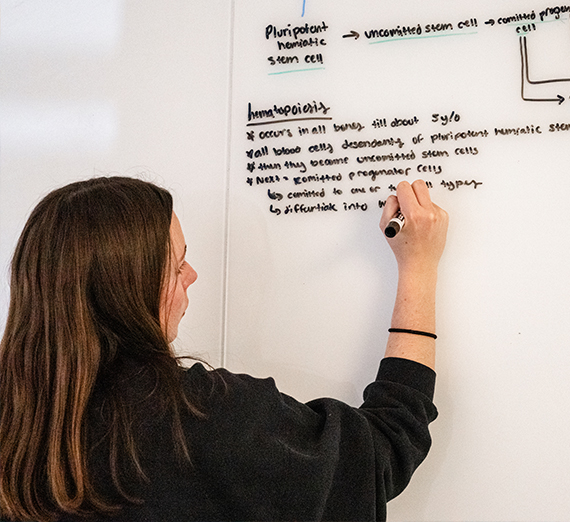 Pluripotent → uncomitted stem cell → comitted progen
hemiatic cell
stem cell
hematopoiesis
* occurs in all bones till about 5 y/o
* all blood cells desendants of pluripotent hemiatic stem
* then thy become uncomitted stem cells
* Next = comitted progenator cells
↳ comitted to one or cell types
↳ diffurtiate into